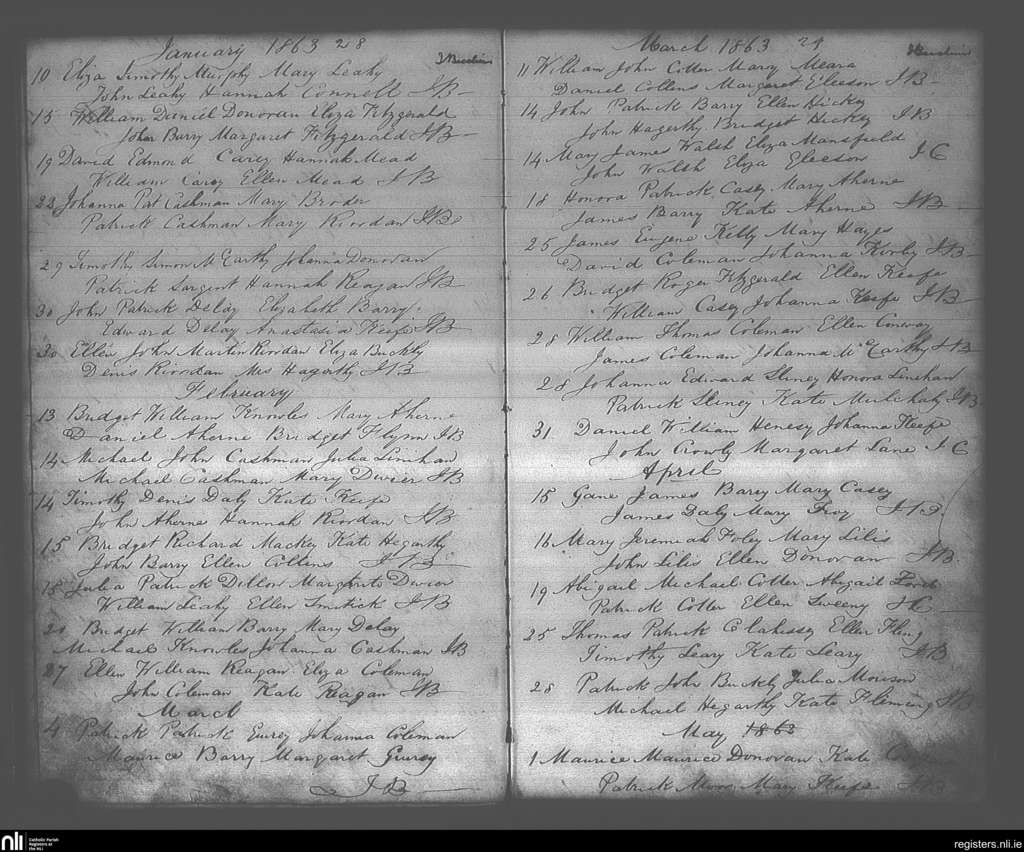 January 1863 28
10 Eliza Timothy Murphy Mary Leahy
John Leahy Hannah Connell JB
15 William Daniel Donovan Eliza Fitzgerald
John Barry Margaret Fitzgerald JB
19 David Edmond Carey Hannah Mead
William Carey Ellen Mead JB
22 Johanna Pat Cashman Mary Broder
Patrick Cashman Mary Riordan JB
29 Timothy Simon McCarthy Johanna Donovan
Patrick Sargent Hannah Reagan JB
30 John Patrick Delay Elizabeth Barry
Edward Delay Anastasia Keefe JB
30 Ellen John Martin Riordan Eliza Buckly
Denis Riordan Mrs Hagerthy JB
February
13 Bridget William Knowles Mary Aherne
Daniel Aherne Bridget Flynn JB
14 Michael John Cashman Julia Linihan
Michael Cashman Mary Divier JB
14 Timothy Denis Daly Kate Keefe
John Aherne Hannah Riordan JB
15 Bridget Richard Mackey Kate Hegarthy
John Barry Ellen Collins JB
15 Julia Patrick Dillon Margarite
William Leahy Ellen Smitick JB
Bridget William Barry Mary Delay
Michael Knowles Johanna Cashman JB
27 Ellen William Reagan Eliza Coleman
John Coleman Kate Reagan JB
March
4 Patrick Patrick Johanna Coleman
Maurice Barry Margaret
JB
March 1863 29
11 William John Cotter Mary Meara
Daniel Collens Margaret Gleeson JB
14 John Patrick Barry Ellen Hickey
John Hagerthy Bridget Hickey JB
14 Mary James Walsh Eliza Mansfield
John Walsh Eliza Gleeson JC
18 Honora Patrick Casey Mary Aherne
James Barry Kate Aherne JB
25 James Eugene Kelly Mary Hayes
David Coleman Johanna Kirby JB
26 Bridget Roger Fitzgerald Ellen Keefe
William Casey Johanna Keefe JB
28 William Thomas Coleman Ellen Conway
James Coleman Johanna McCarthy JB
28 Johanna Edward Sliney Honora Linehan
Patrick Sliney Kate Mulchahy JB
31 Daniel William Henesy Johanna Keefe
John Crowly Margaret Lane JC
April
15 James Barry Mary Casey
James Daly Mary JB
16 Mary Jeremiah Foley Mary Lilis
John Lilis Ellen Donovan JB
19 Abigail Michael Cotter Abigail
Patrick Cotter Ellen Sweeny JC
25 Thomas Patrick Ellen
Timothy Leary Kate Leary JB
28 Patrick John Buckly Julia
Michael Hegarthy Kate Fleming JB
May 1863
1 Maurice Maurice Donovan Kate
Patrick Mary Keefe JB
nli
Catholic Parish
Registers at
the NLI
registers.nli.ie